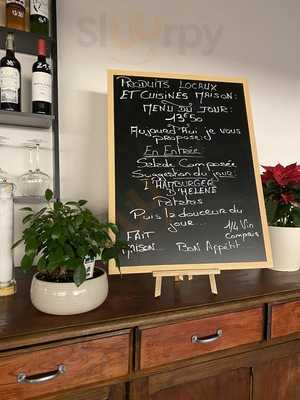 Produits Locaux
et Cuisinés Maison:
Menu du jour
13€50
Aujourd'hui je vous
propose:
En Entrée
Salade Composée
Suggestion du jour:
L'Hamburger
d'Helene
Patatas
Puis la douceur du
jour...
1/4 Vin
Compris
Fait
Maison...
Bon Appétit
Sluurpy